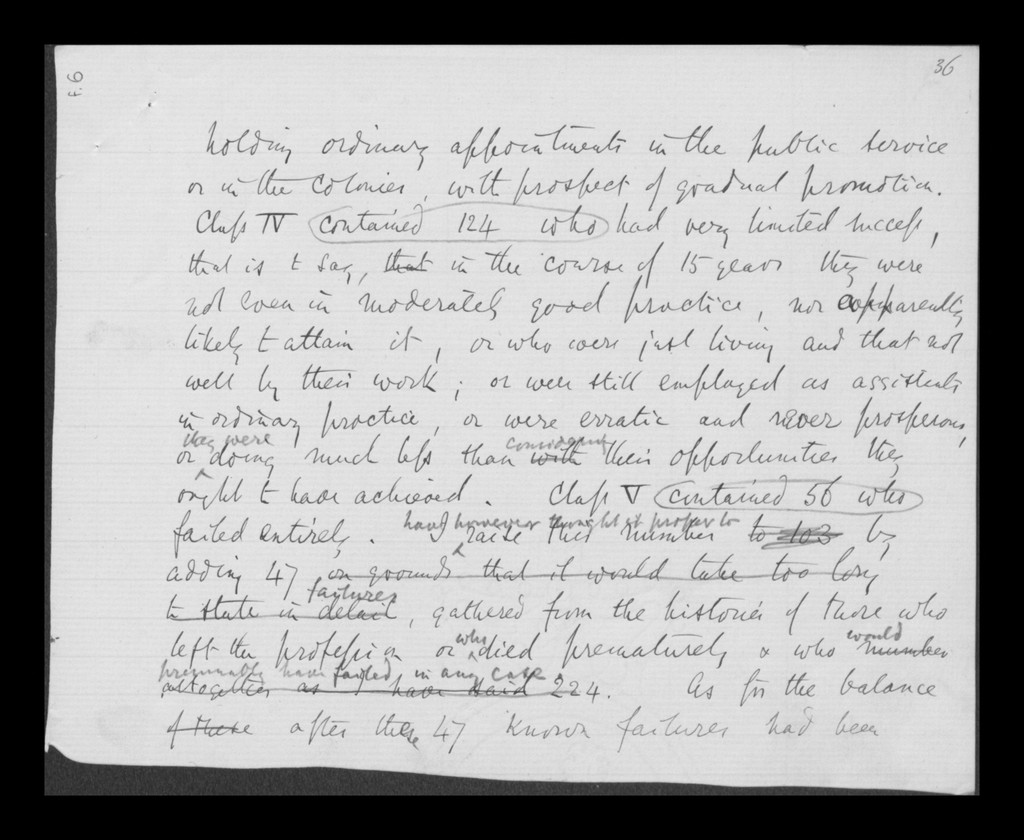 36
F.6
holding ordinary appointments in the public service
or in the Colonies, with prospect of gradual promotion.
Class IV contained 124 who had very limited success,
that is to say, that in the course of 15 years they were
not even in moderately good practice, nor apparently
likely to attain it, or who were just living and that not
well by their work; or were still employed as assistants
in ordinary practice, or were erratic and never prosperous,
they were considering
or doing much less than with their opportunities they
ought to have achieved. Class V contained 56 who
have however thought it proper to
failed entirely. I raise this number to 103 by
adding 47 on grounds that it would take too long
failures
to state in detail, gathered from the histories of those who
who would
left the profession or died prematurely & who number
presumably have failed in any case
altogether as I have said 224. As for the balance
of these after these 47 known failures had been